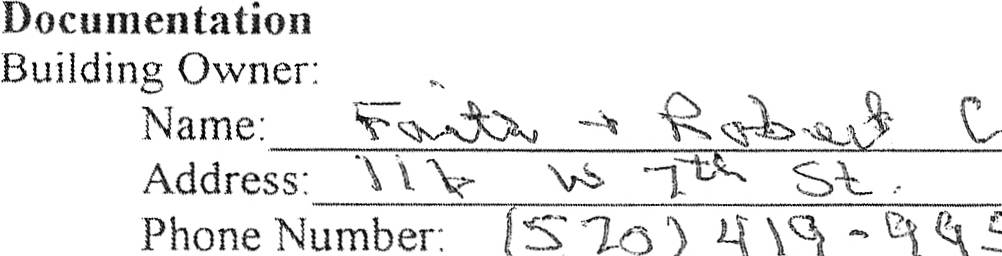 Documentation
Building Owner:
Name: Faith + Robert C
Address: W 7th St.
Phone Number: (570) 419-995